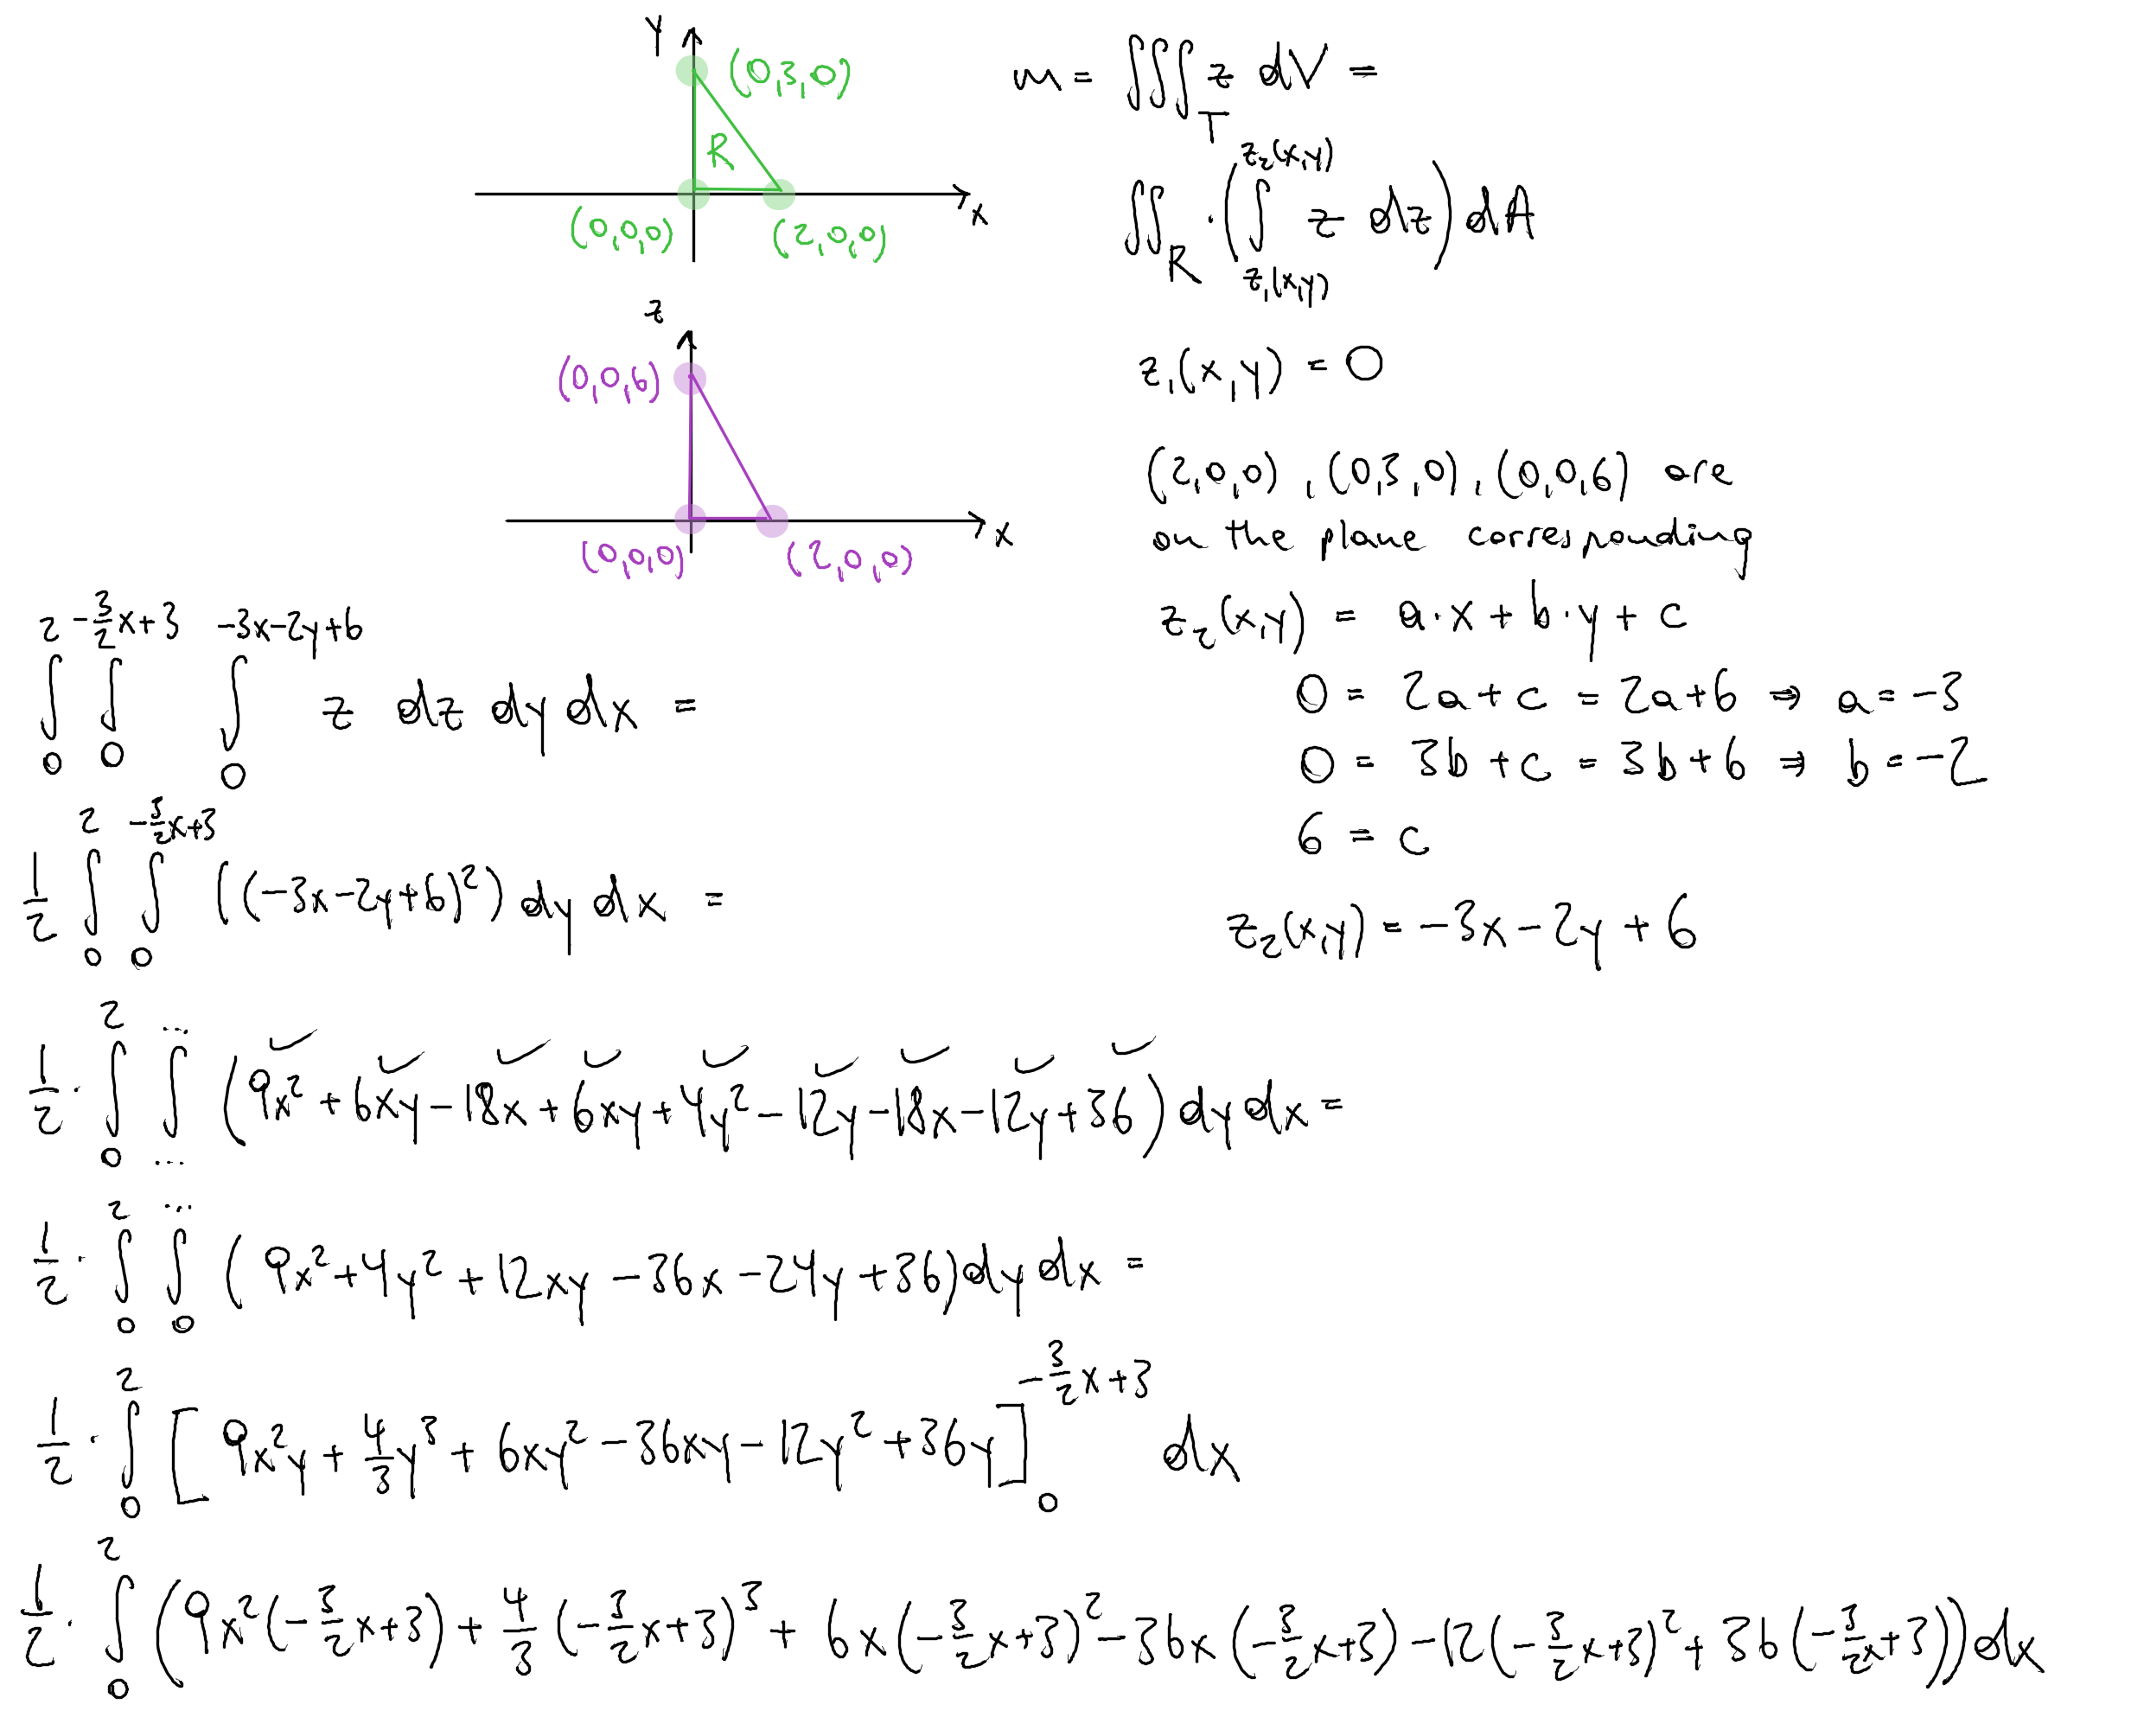 y
(0,3,0)
R
x
(0,0,0)
(2,0,0)
z
(0,0,6)
x
(0,0,0)
(2,0,0)
m = ∭_T z dV =
∬_R · (∫_{z₁(x,y)}^{z₂(x,y)} z dz) dA
z₁(x,y) = 0
(2,0,0), (0,3,0), (0,0,6) are
on the plane corresponding
z₂(x,y) = a·x + b·y + c
0 = 2a + c = 2a + 6 ⇒ a = -3
0 = 3b + c = 3b + 6 ⇒ b = -2
6 = c
z₂(x,y) = -3x - 2y + 6
∫_0^2 ∫_0^{-3/2 x+3} ∫_0^{-3x-2y+6} z dz dy dx =
1/2 ∫_0^2 ∫_0^{-3/2 x+3} ((-3x-2y+6)²) dy dx =
1/2 · ∫_0^2 ∫_{...}^{...} (9x² + 6xy - 18x + 6xy + 4y² - 12y - 18x - 12y + 36) dy dx =
1/2 · ∫_0^2 ∫_0^{...} (9x² + 4y² + 12xy - 36x - 24y + 36) dy dx =
1/2 · ∫_0^2 [9x²y + 4/3 y³ + 6xy² - 36xy - 12y² + 36y]_0^{-3/2 x+3} dx
1/2 · ∫_0^2 (9x²(-3/2 x+3) + 4/3 (-3/2 x+3)³ + 6x(-3/2 x+3)² - 36x(-3/2 x+3) - 12(-3/2 x+3)² + 36(-3/2 x+3)) dx